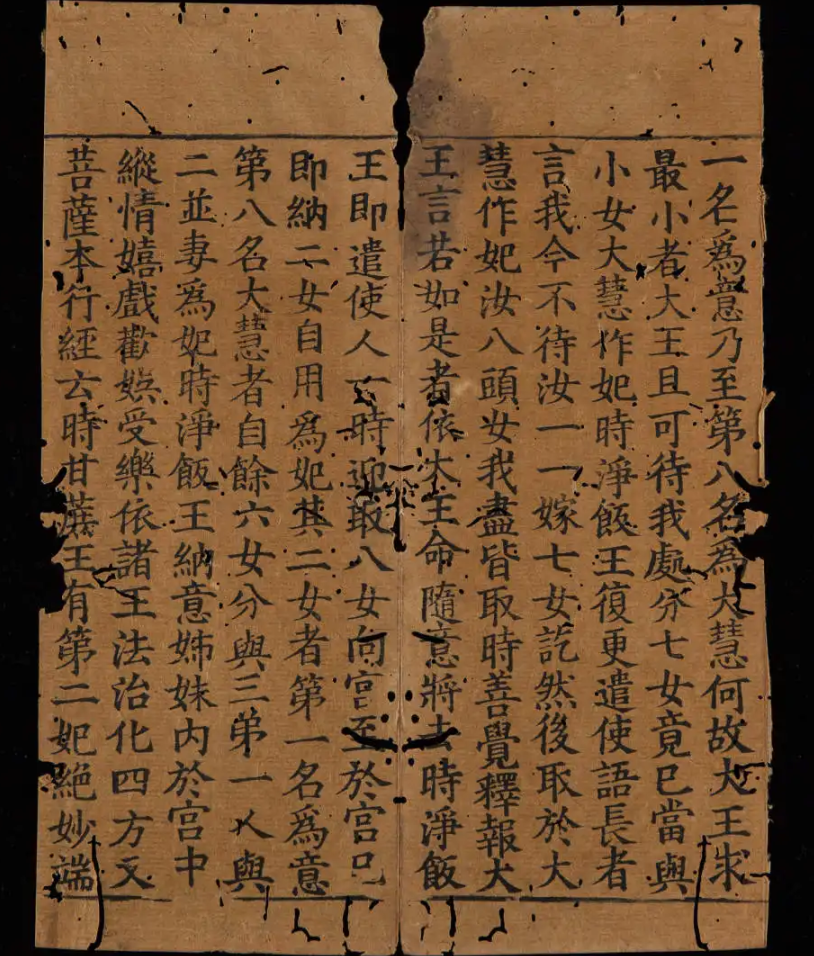 一名為意乃至第八名為大慧何故大王求
最小者大王且可待我處分七女竟已當與
小女大慧作妃時淨飯王復更遣使語長者
言我今不待汝一一嫁七女訖然後取於大
慧作妃汝八頭女我盡皆取時善覺釋報大
王言若如是者依大王命隨意將去時淨飯
王即遣使人一時迎取八女向宮至於宮已
即納二女自用為妃其二女者第一名為意
第八名大慧者自餘六女分與三弟一人與
二並妻為妃時淨飯王納意姊妹內於宮中
縱情嬉戲歡娛受樂依諸王法治化四方又
菩薩本行經云時甘蔗王有第二妃絕妙端